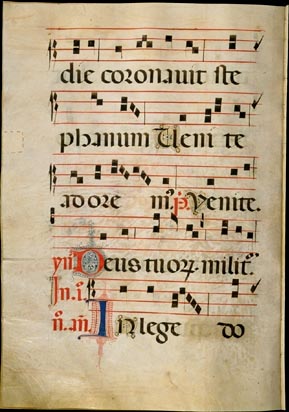 die coronavit ste
phanum Veni te
adore m⁹. p̄. Venite.
ym̄. Deus tuoꝝ milit⁹.
In. i.
n̄. añ. IN lege do